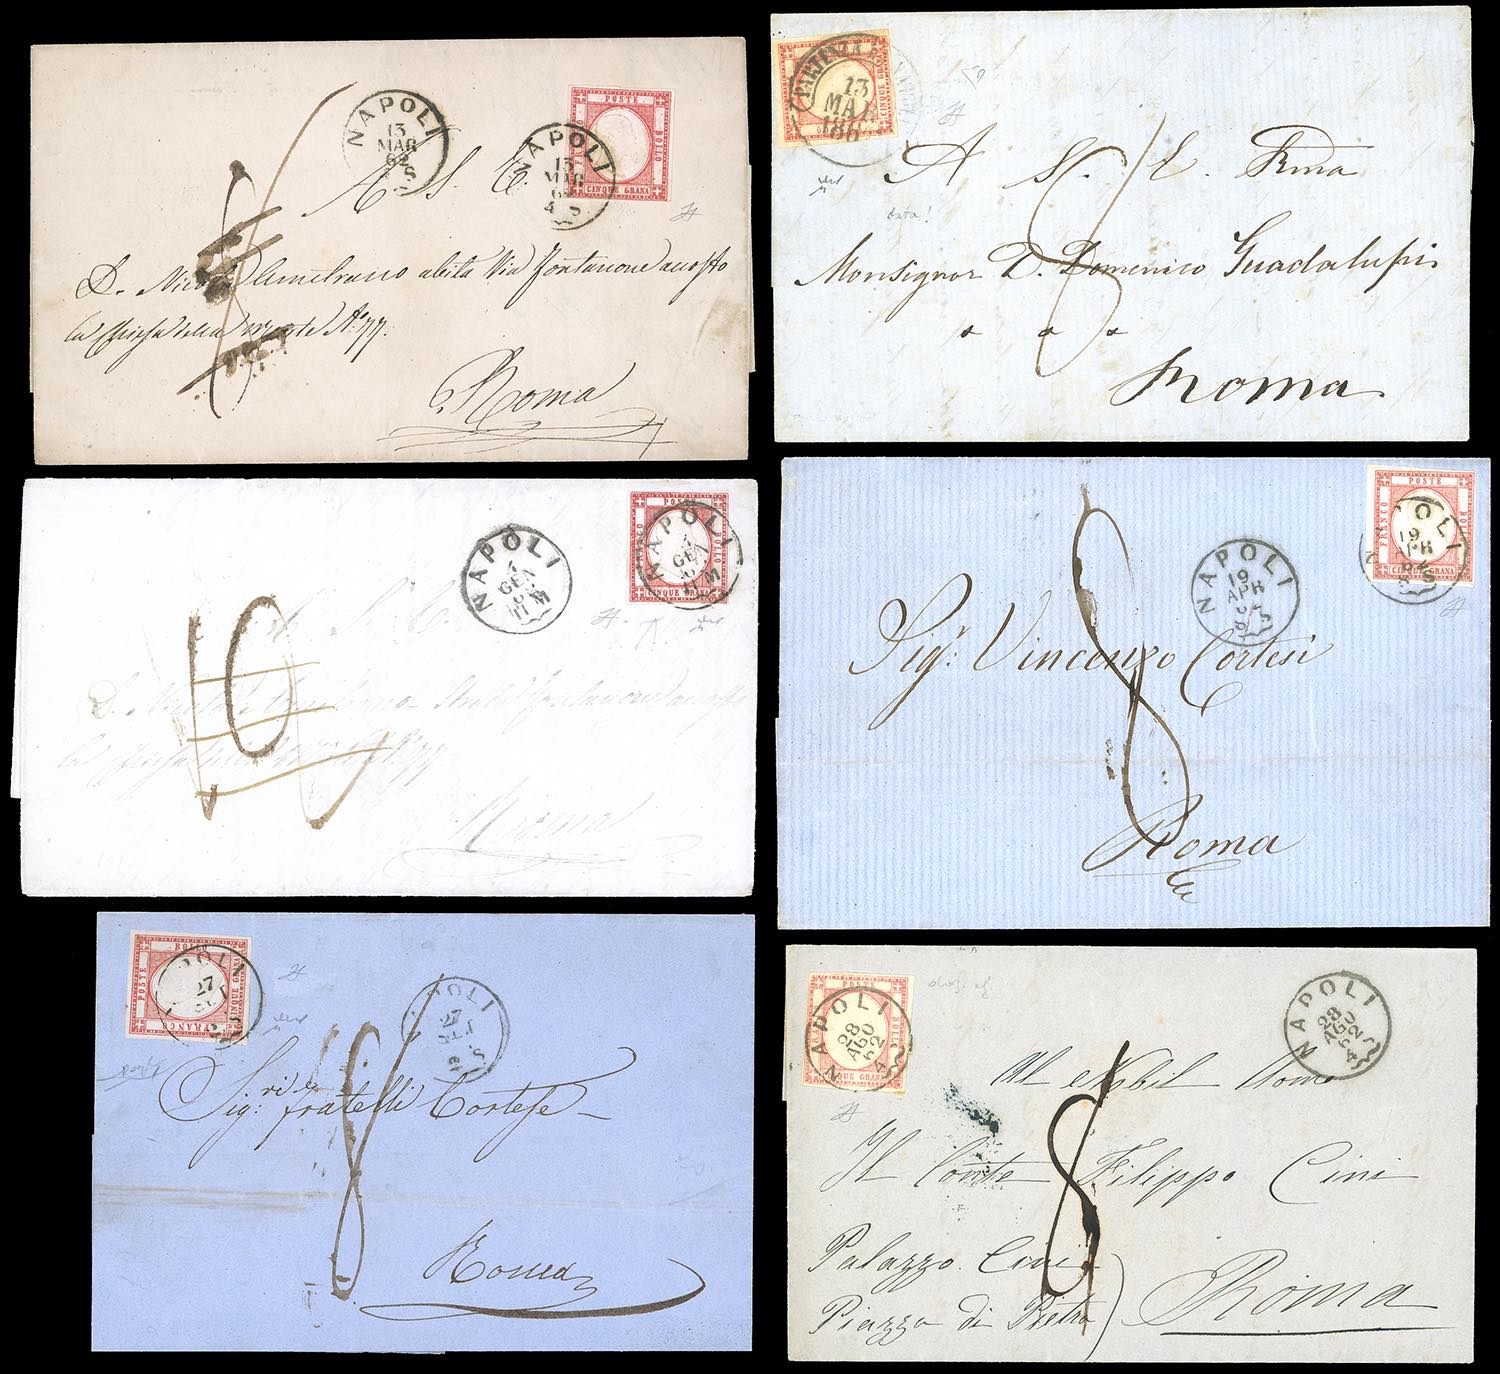 NAPOLI
13
MAR
62
4 S
NAPOLI
13
MAR
62
4 S
POSTE
FRANCO
BOLLO
CINQUE GRANA
A S. E.
D. Nicola abita Via Fontanone accosto
la Chiesa della Morte No. 77.
Roma
PARTENZA
13
MAR
186
CINQUE GRANA
data!
A S. E. Rma
Monsignor D. Domenico Guadalupi
Roma
NAPOLI
GEN
11 M
NAPOLI
GEN
11 M
POSTE
FRANCO
BOLLO
CINQUE GRANA
10
A S. E.
D. Nicola Fontanone accosto
la Chiesa della No. 77
Roma
NAPOLI
19
APR
NAPOLI
19
APR
POSTE
FRANCO
BOLLO
CINQUE GRANA
8
Sigr. Vincenzo Cortesi
Roma
NAPOLI
27
NAPOLI
27
SET
BOLLO
POSTE
CINQUE GRANA
FRANCO
8
Sigri. fratelli Cortese
Roma
NAPOLI
28
AGO
62
4 S
NAPOLI
28
AGO
62
4 S
POSTE
BOLLO
CINQUE GRANA
8
Al Nobil Uomo
Il Conte Filippo Cini
Palazzo Cini
Piazza di Pietra)
Roma